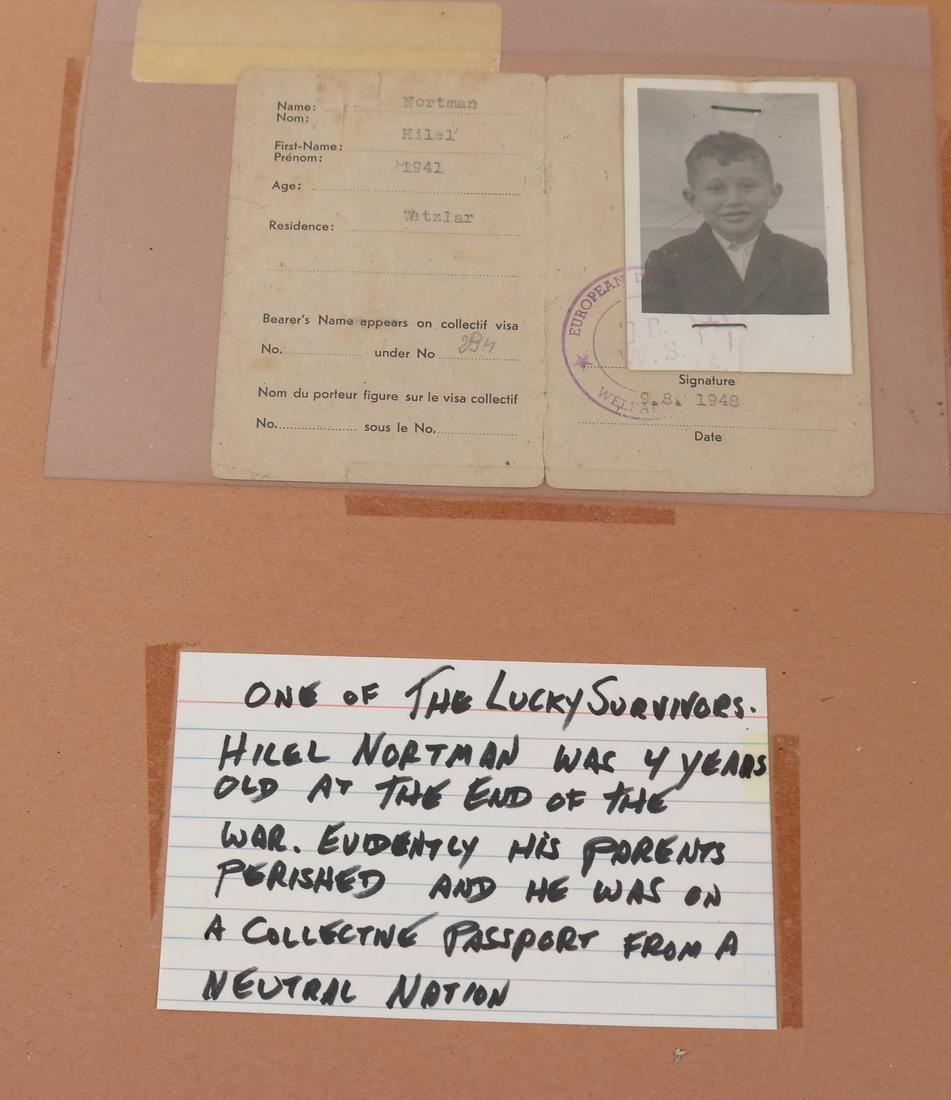 Name: Nortman
Nom:
First-Name: Hilel
Prénom:
1941
Age:
Residence: Watzlar
Bearer's Name appears on collectif visa
No. under No 294
Nom du porteur figure sur le visa collectif
No. sous le No.
EUROPEAN
J.R.
W.S.
Signature
9.8. 1948
Date
ONE OF THE LUCKY SURVIVORS.
HILEL NORTMAN WAS 4 YEARS
OLD AT THE END OF THE
WAR. EVIDENTLY HIS PARENTS
PERISHED AND HE WAS ON
A COLLECTIVE PASSPORT FROM A
NEUTRAL NATION